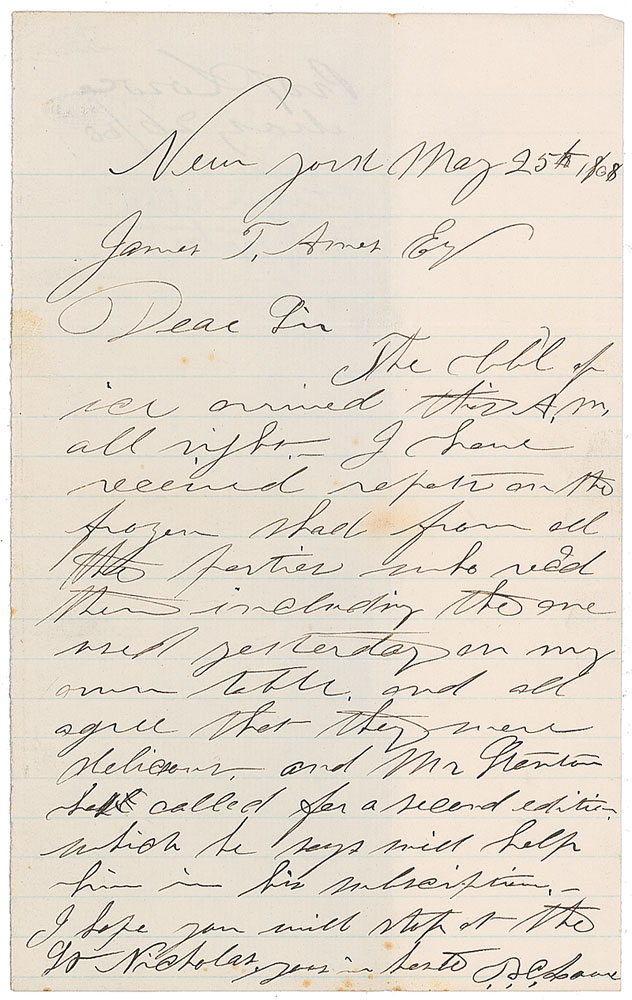 New York May 25th 1868
James T. Ames Esq
Dear Sir
The bbl of
ice arrived this A.M,
all right – I have
received reports on the
frozen shad from all
the parties who rec'd
them including the one
used yesterday on my
own table, and all
agree that they were
delicious, and Mr Stenton
has called for a second edition
which he says will help
him in his subscription. –
I hope you will stop at the
St Nicholas, yours in haste
Lowe